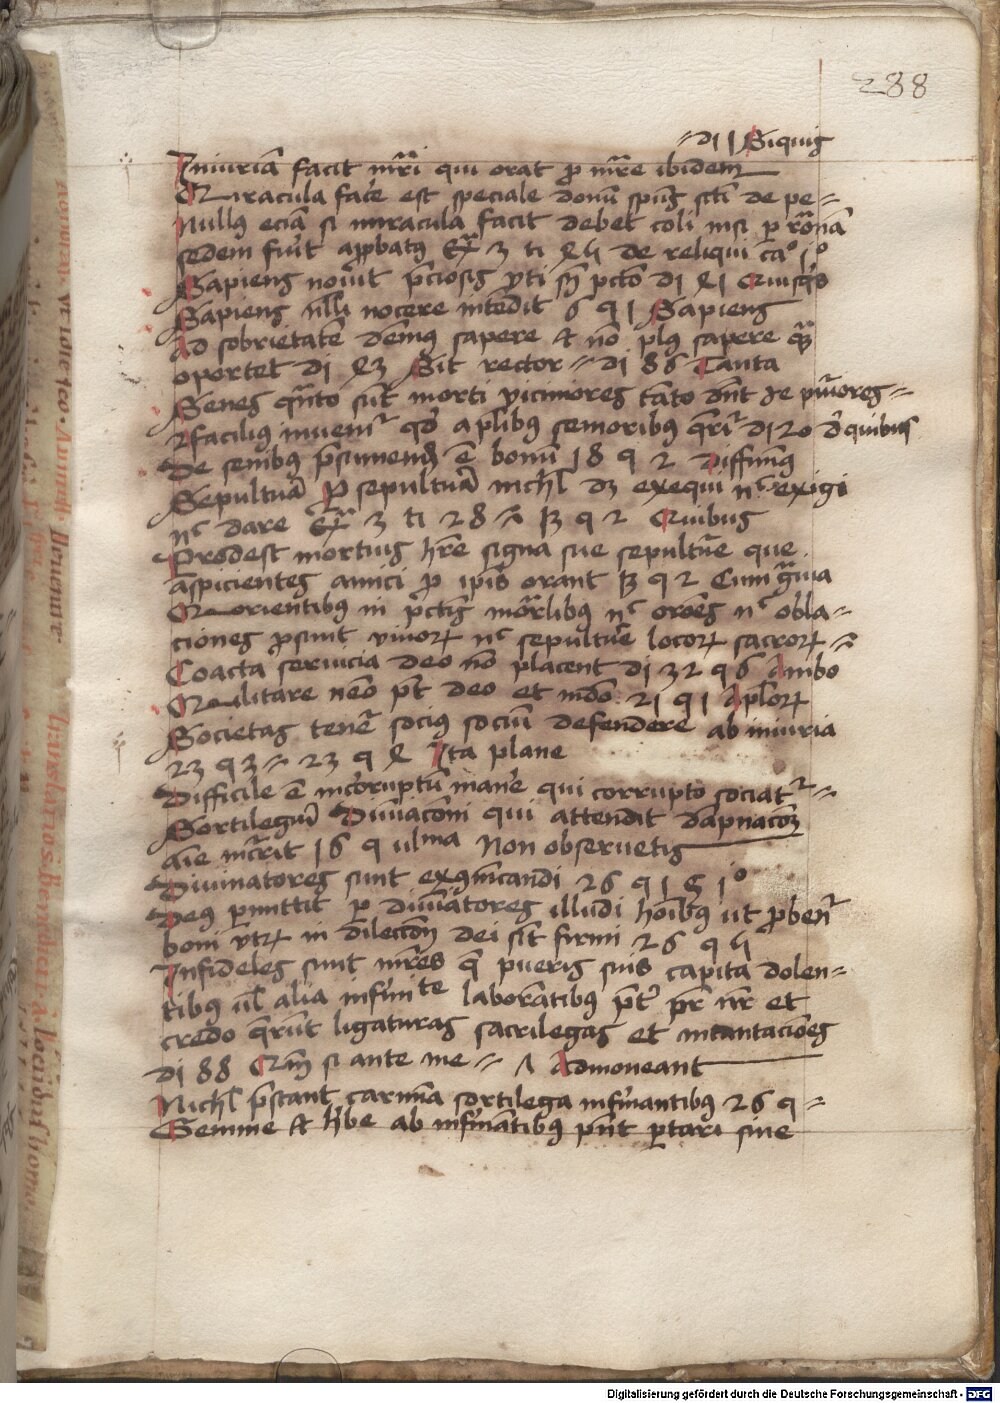 288
// di 1 Siquis
Iniuriam facit mr̄i qui orat p mr̄e ibidem
Miracula facere est speciale donū spūs scti de pe //
Nullus eciā si miracula facit debet coli nisi p romanā
sedem fuīt approbatus Ex̄ 3 ti 45 de reliqui ca° 1°
Sapiens nouit p̄ciosis vti sn̄ pctō di 41 Quisq̄s
Sapiens nlli nocere intēdit 6 q 1 Sapiens
Ad sobrietatē dem̄us sapere et nō plus sapere q̄
oportet di 43 Sit rector // di 86 Tanta
Senes qn̄to sūt morti viciniores tāto dn̄t ee puriores //
facilius inuenīt qd̄ a plībus senioribus qr̄it di 20 de quibus
De senibus p̄sumend ē bonū 18 q 2 Diffinimus
Sepulturā Pro sepulturā nichl dz exequi nc exigi
nc dare Ex̄ 3 ti 28 // 13 q 2 Quibus
Prodest mortuis hr̄e signa sue sepulture que
aspicientes amici p ipīs orant 13 q 2 Cum grauia
Morientibus in pctīs mōrlibus nc orōes nc obla //
ciones psunt viuor nc sepulture locor sacror //
Coacta seruicia deo nō placent di 32 q 6 Ambo
Militare nēo pt̄ deo et mdō 21 q 1 Aplor
Societas tenet̄ socius sociū defendere ab iniuria
23 q 3 // 23 q 4 Ita plane
Difficile ē incorruptū manere qui corrupto sociatr //
Sortilegū Diuinacōni qui attendit dāpnacōz
aīe incr̄rit 16 q ulma Non obseruetis
Diuinatores sunt exōicandi 26 q 1 § 1°
Deus p̄mittit p diuinatores illudi hoībus ut p̄benr̄
boni vtr in dilectiōn dei sīt firmi 26 q 5
Infideles sunt mr̄es q̄ pueris suis capita dolen //
tibus ul alia infirmite laborātibus pt̄ pr nr et
credo qr̄ūt ligaturas sacrilegas et incantaciōes
di 88 Qm̄ si ante me // ʌ Admoneant
Nichl p̄stant carmina sortilega infirmantibus 26 q //
Gemme et h̄be ab infirmātibus pn̄t p̄tari sine
Digitalisierung gefördert durch die Deutsche Forschungsgemeinschaft · DFG